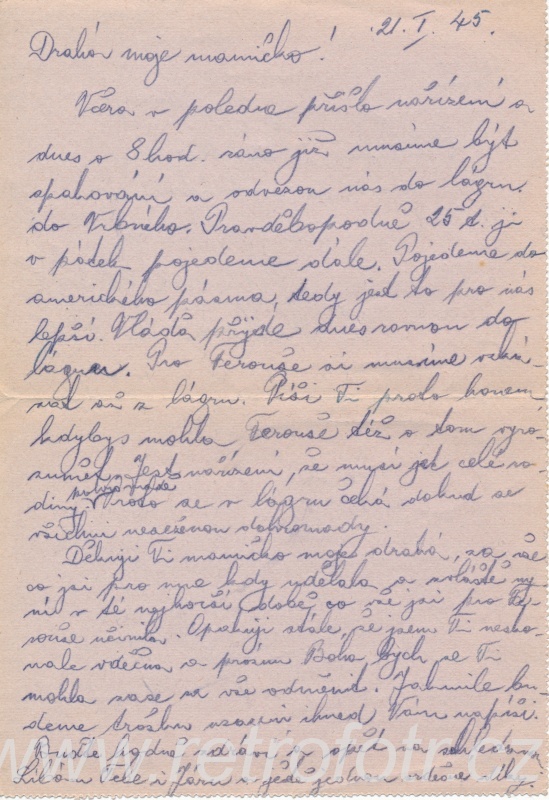 21. I. 45.
Drahá moje mamičko!
Včera v poledne přišlo nařízení a
dnes o 8 hod. ráno již musíme být
spakováni a odvezou nás do lágru.
do Vrbného. Pravděbopodně 25 t. j.
v pátek pojedeme dále. Pojedeme do
amerického pásma, tedy jest to pro nás
lepší. Vláďa přijde dnes rovnou do
lágru. Pro Ferouše si musíme
až z lágru. Píši Ti proto honem,
kdybys mohla Ferouše též o tom vyro-
zumět. Jest nařízení, že musí jet celé ro-
diny. Proto se v lágru čeká dokud se
všichni nesezenou dohromady.
Děkuji Ti mamičko moje drahá, za vše
co jsi pro mne kdy udělala a zvláště ny-
ní v té nejhorší době, co vše jsi pro Fe-
rouše učinila. Opakuji stále, že jsem Ti nesko-
nale vděčna a prosím Boha, bych se Ti
mohla zase za vše odměnit. Jakmile bu-
deme trošku usazeni ihned Vám napíši.
Buďte hodně zdrávi a opět na shledanou
Líbám Tebe i Jaru a ještě jednou díky.
www.retrofotr.cz